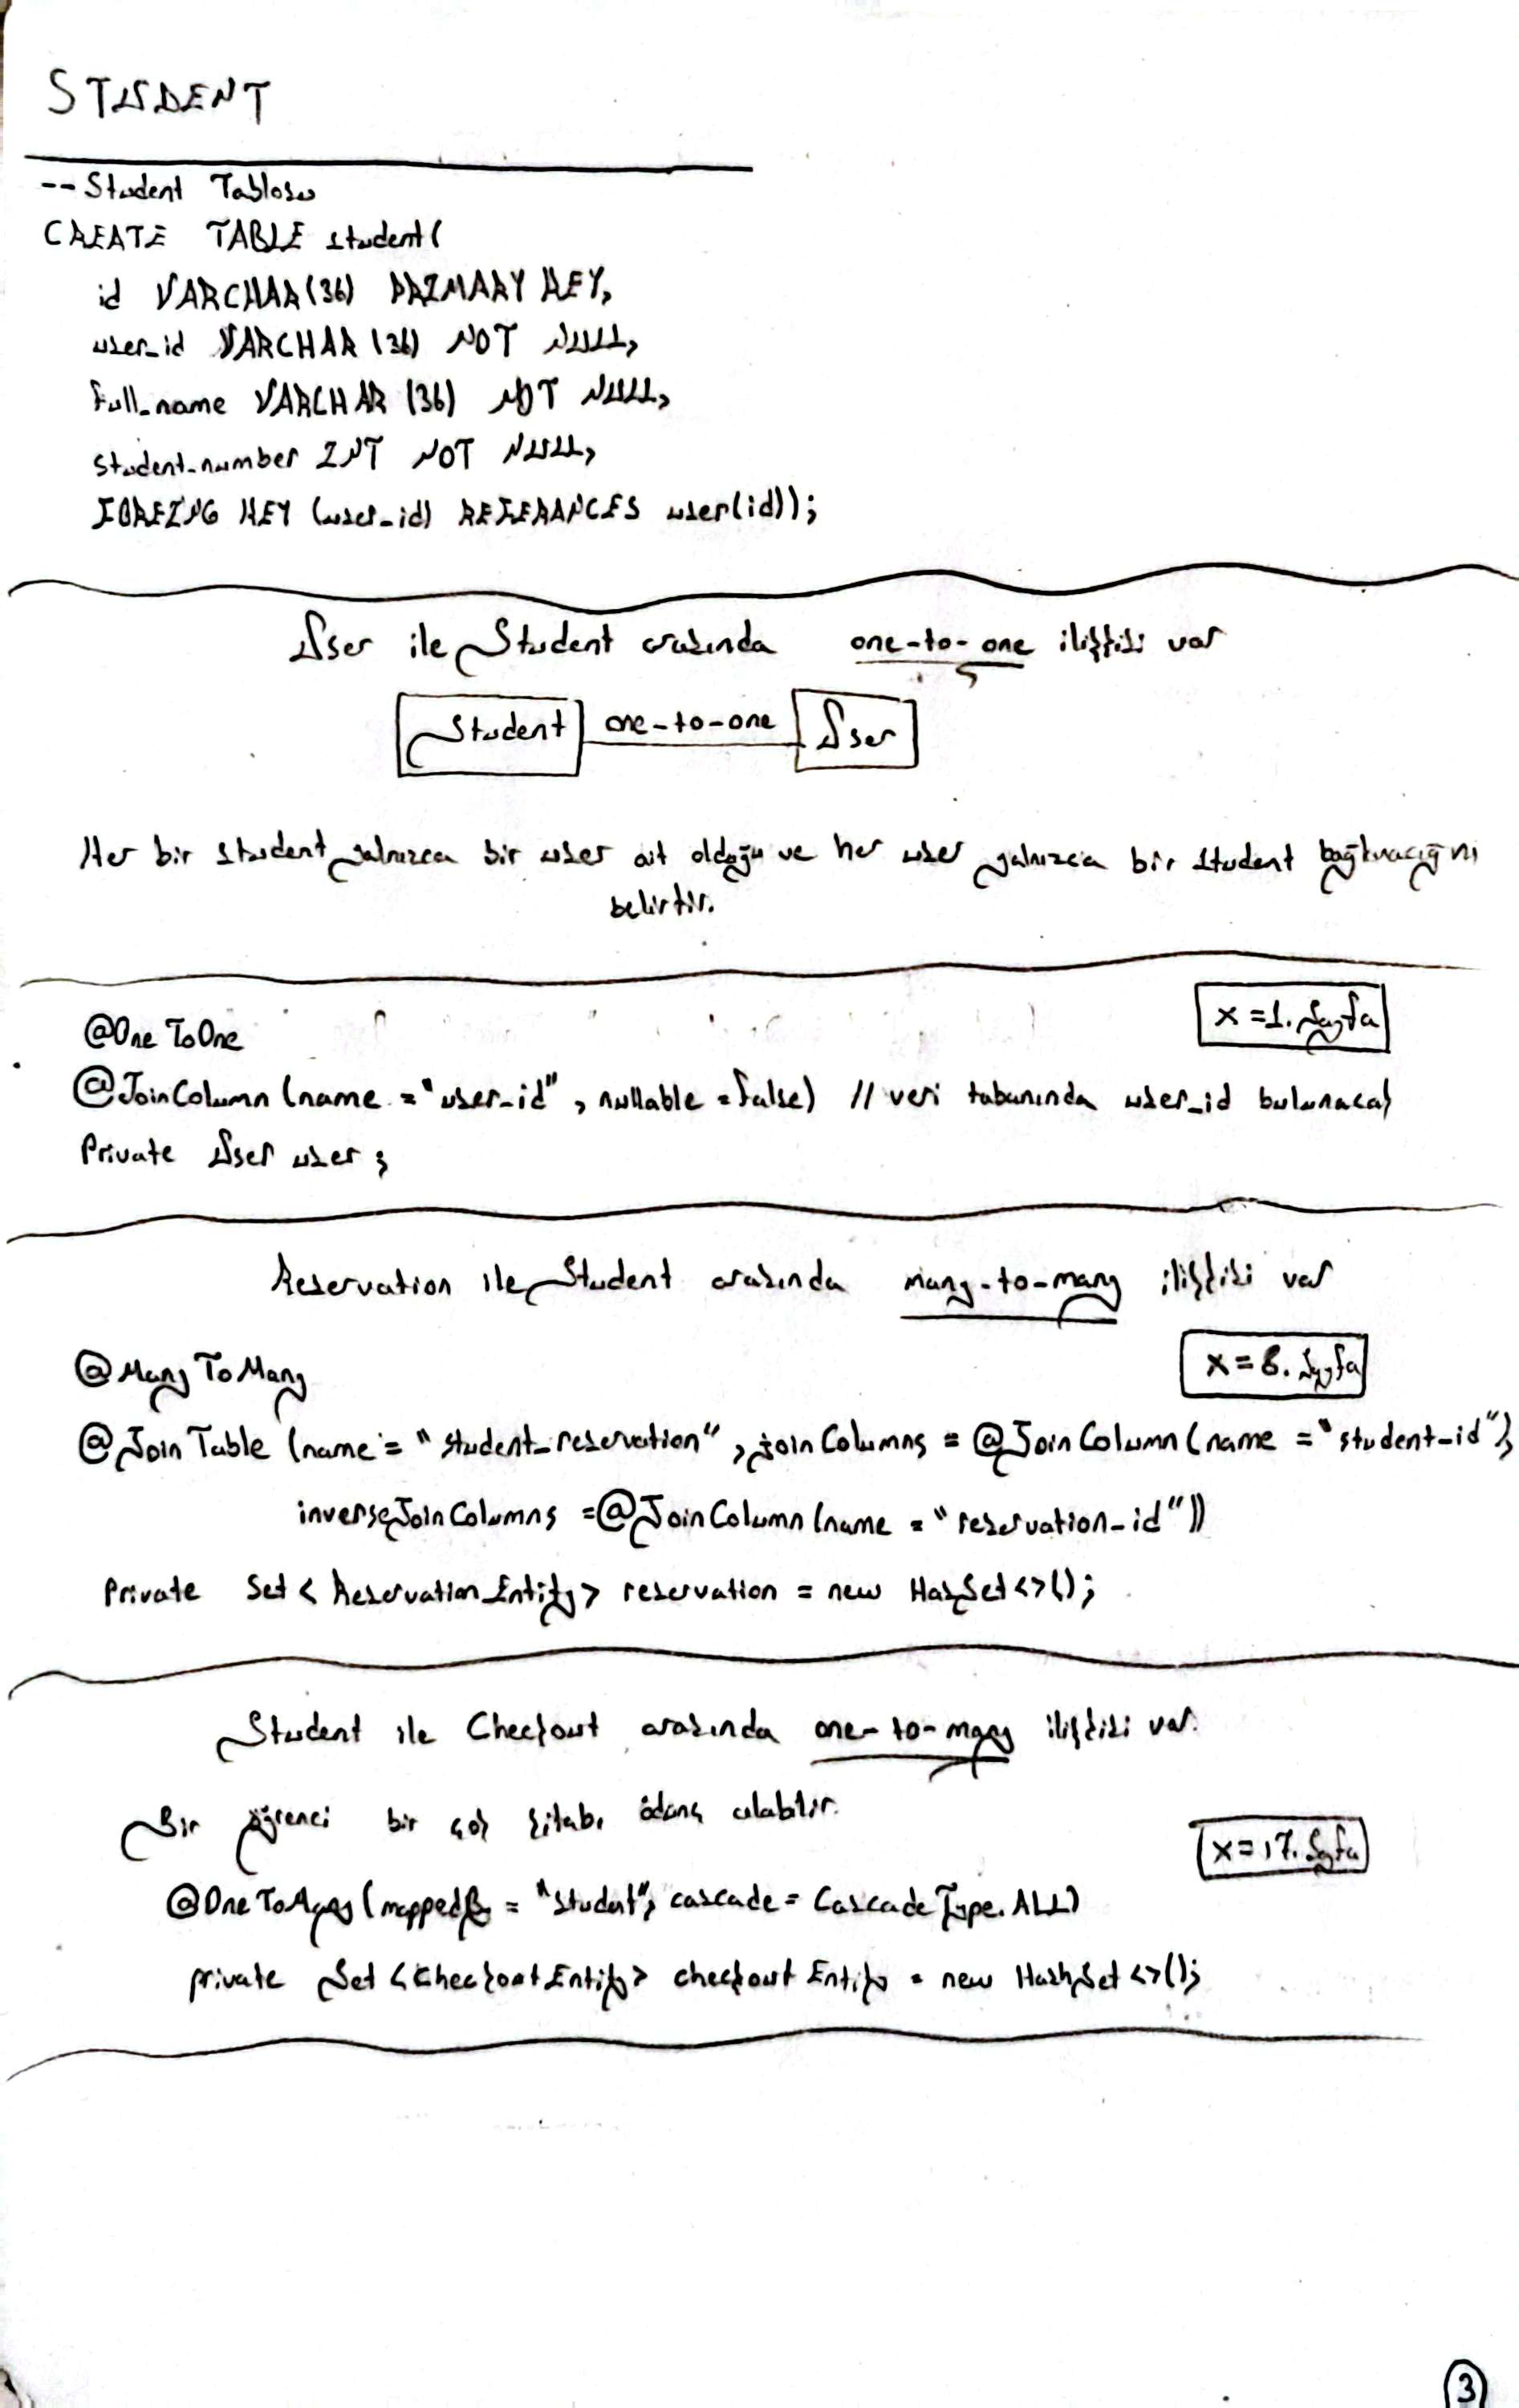 STUDENT
-- Student Tablosu
CREATE TABLE student(
id VARCHAR(36) PRIMARY KEY,
user_id VARCHAR (36) NOT NULL,
full_name VARCHAR (36) NOT NULL,
student_number INT NOT NULL,
FOREING KEY (user_id) REFERANCES user(id));
User ile Student arasında one-to-one ilişkisi var
Student one-to-one User
Her bir student yalnızca bir user ait olduğu ve her user yalnızca bir student
belirtir.
x=1. Sayfa
@OneToOne
@JoinColumn (name = "user_id", nullable = false) // veri tabanında user_id bulunacak
Private User user;
Reservation ile Student arasında many-to-many ilişkisi var
x=8. Sayfa
@ManyToMany
@JoinTable (name = "student_reservation", joinColumns = @JoinColumn (name = "student_id"),
inverseJoinColumns = @JoinColumn (name = "reservation_id"))
Private Set < ReservationEntity> reservation = new HashSet<>();
Student ile Checkout arasında one-to-many ilişkisi var.
Bir öğrenci bir çok kitabı ödünç alabilir.
x=17. Sayfa
@OneToMany (mappedBy = "Student", cascade = CascadeType.ALL)
private Set <CheckoutEntity> checkoutEntity = new HashSet<>();
3